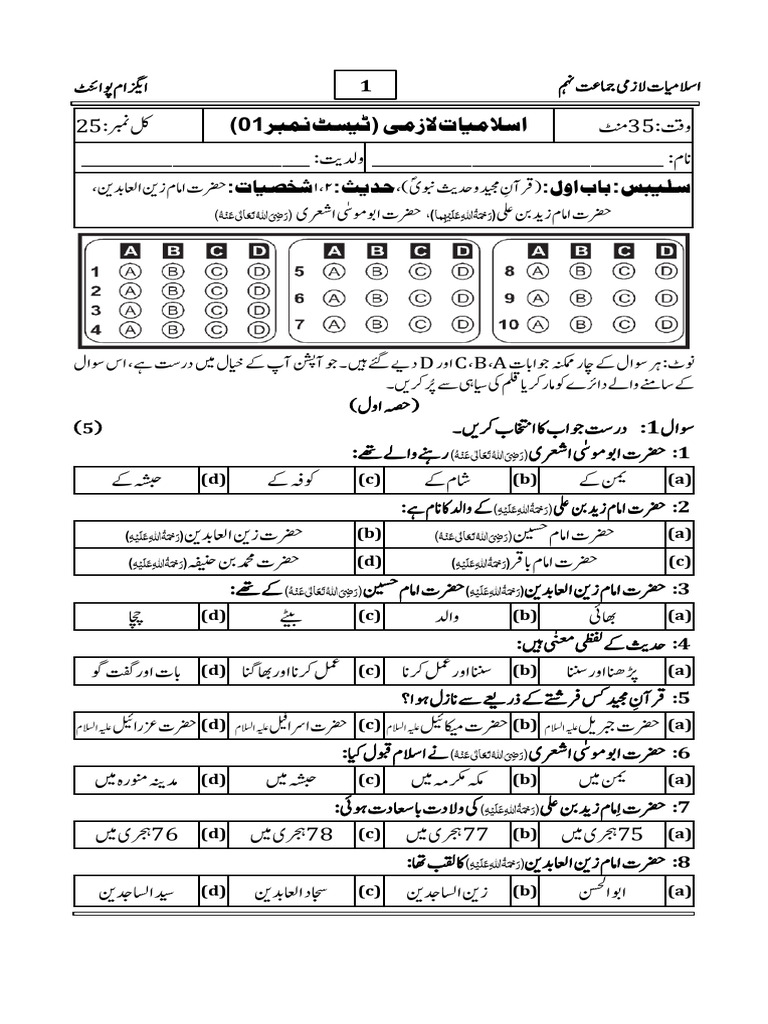 اسلامیات لازمی جماعت نہم 1 ایگزام پوائنٹ
وقت:35منٹ اسلامیات لازمی (ٹیسٹ نمبر01) کل نمبر:25
نام: ______________________ ولدیت: ______________________
سلیبس: باب اول: (قرآنِ مجید و حدیث نبویؐ)، حدیث: ۱،۲ شخصیات: حضرت امام زین العابدین،
حضرت امام زید بن علی (رَحْمَۃُ اللہِ عَلَیْہِما)، حضرت ابوموسٰی اشعری (رَضِیَ اللہُ تَعَالٰی عَنْہُ)
A B C D A B C D A B C D
1 A B C D 5 A B C D 8 A B C D
2 A B C D 6 A B C D 9 A B C D
3 A B C D 7 A B C D 10 A B C D
4 A B C D
نوٹ: ہر سوال کے چار ممکنہ جوابات A،B،C اور D دیے گئے ہیں۔ جو آپشن آپ کے خیال میں درست ہے، اس سوال
کے سامنے والے دائرے کو مارکر یا قلم کی سیاہی سے پُر کریں۔
(حصہ اول)
سوال1: درست جواب کا انتخاب کریں۔ (5)
1: حضرت ابوموسٰی اشعری (رَضِیَ اللہُ تَعَالٰی عَنْہُ) رہنے والے تھے:
(a) یمن کے (b) شام کے (c) کوفہ کے (d) حبشہ کے
2: حضرت امام زید بن علی (رَحْمَۃُ اللہِ عَلَیْہِ) کے والد کا نام ہے:
(a) حضرت امام حسین (رَضِیَ اللہُ تَعَالٰی عَنْہُ) (b) حضرت زین العابدین (رَحْمَۃُ اللہِ عَلَیْہِ)
(c) حضرت امام باقر (رَحْمَۃُ اللہِ عَلَیْہِ) (d) حضرت محمد بن حنیفہ (رَحْمَۃُ اللہِ عَلَیْہِ)
3: حضرت امام زین العابدین (رَحْمَۃُ اللہِ عَلَیْہِ) حضرت امام حسین (رَضِیَ اللہُ تَعَالٰی عَنْہُ) کے تھے:
(a) بھائی (b) والد (c) بیٹے (d) چچا
4: حدیث کے لفظی معنٰی ہیں:
(a) پڑھنا اور سننا (b) سننا اور عمل کرنا (c) عمل کرنا اور بھاگنا (d) بات اور گفت گو
5: قرآنِ مجید کس فرشتے کے ذریعے سے نازل ہوا؟
(a) حضرت جبریل علیہ السلام (b) حضرت میکائیل علیہ السلام (c) حضرت اسرافیل علیہ السلام (d) حضرت عزرائیل علیہ السلام
6: حضرت ابوموسٰی اشعری (رَضِیَ اللہُ تَعَالٰی عَنْہُ) نے اسلام قبول کیا:
(a) یمن میں (b) مکہ مکرمہ میں (c) حبشہ میں (d) مدینہ منورہ میں
7: حضرت اِمام زید بن علی (رَحْمَۃُ اللہِ عَلَیْہِ) کی ولادت باسعادت ہوئی:
(a) 75ہجری میں (b) 77ہجری میں (c) 78ہجری میں (d) 76ہجری میں
8: حضرت امام زین العابدین (رَحْمَۃُ اللہِ عَلَیْہِ) کا لقب تھا:
(a) ابوالحسن (b) زین الساجدین (c) سجاد العابدین (d) سید الساجدین